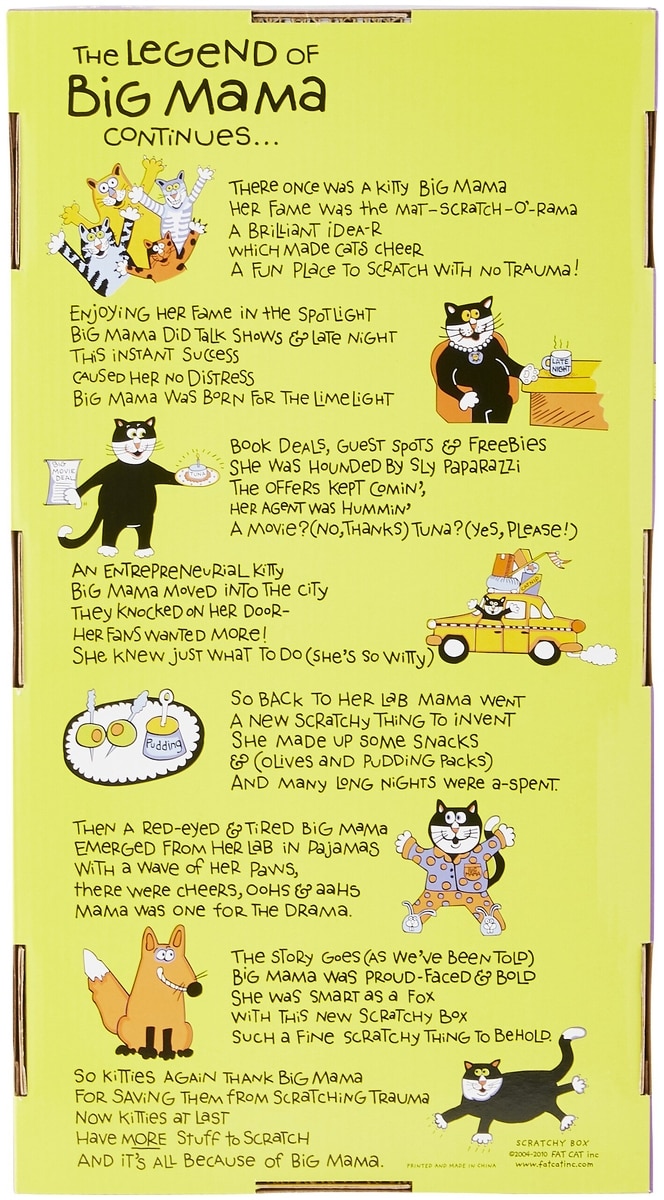 THE LEGEND OF
BIG MAMA
CONTINUES...
THERE ONCE WAS A KITTY BIG MAMA
HER FAME WAS THE MAT-SCRATCH-O'-RAMA
A BRILLIANT IDEA-R
WHICH MADE CATS CHEER
A FUN PLACE TO SCRATCH WITH NO TRAUMA!
ENJOYING HER FAME IN THE SPOTLIGHT
BIG MAMA DID TALK SHOWS & LATE NIGHT
THIS INSTANT SUCCESS
CAUSED HER NO DISTRESS
BIG MAMA WAS BORN FOR THE LIMELIGHT
LATE
NIGHT
BIG
MOVIE
DEAL
TUNA
BOOK DEALS, GUEST SPOTS & FREEBIES
SHE WAS HOUNDED BY SLY PAPARAZZI
THE OFFERS KEPT COMIN',
HER AGENT WAS HUMMIN'
A MOVIE? (NO, THANKS) TUNA? (YES, PLEASE!)
AN ENTREPRENEURIAL KITTY
BIG MAMA MOVED INTO THE CITY
THEY KNOCKED ON HER DOOR-
HER FANS WANTED MORE!
SHE KNEW JUST WHAT TO DO (SHE'S SO WITTY)
CATNIP
Pudding
SO BACK TO HER LAB MAMA WENT
A NEW SCRATCHY THING TO INVENT
SHE MADE UP SOME SNACKS
& (OLIVES AND PUDDING PACKS)
AND MANY LONG NIGHTS WERE A-SPENT.
THEN A RED-EYED & TIRED BIG MAMA
EMERGED FROM HER LAB IN PAJAMAS
WITH A WAVE OF HER PAWS,
THERE WERE CHEERS, OOHS & AAHS
MAMA WAS ONE FOR THE DRAMA.
THE STORY GOES (AS WE'VE BEEN TOLD)
BIG MAMA WAS PROUD-FACED & BOLD
SHE WAS SMART AS A FOX
WITH THIS NEW SCRATCHY BOX
SUCH A FINE SCRATCHY THING TO BEHOLD.
SO KITTIES AGAIN THANK BIG MAMA
FOR SAVING THEM FROM SCRATCHING TRAUMA
NOW KITTIES AT LAST
HAVE MORE STUFF TO SCRATCH
AND IT'S ALL BECAUSE OF BIG MAMA.
PRINTED AND MADE IN CHINA
SCRATCHY BOX
©2004-2010 FAT CAT inc
www.fatcatinc.com